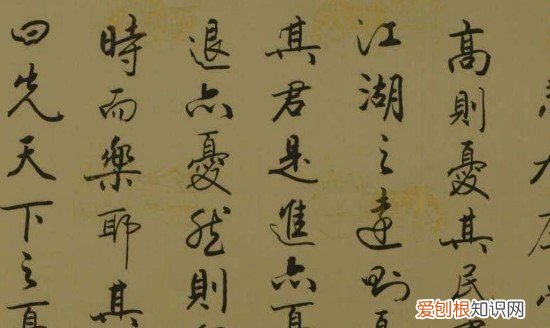 高則憂其民
江湖之遠則憂
其君是進亦憂
退亦憂然則
時而樂耶其
曰先天下之憂
爱刨根知识网